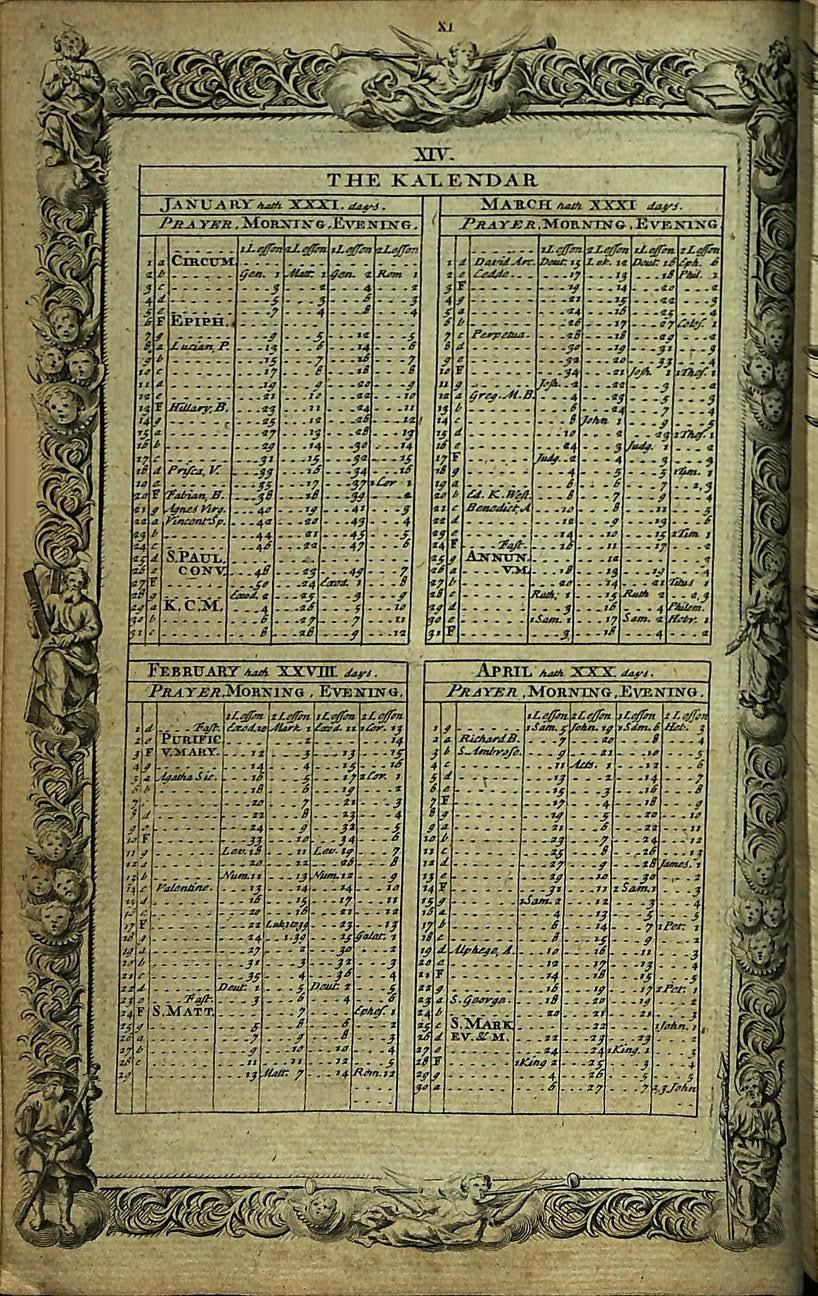 XI
XIV.
THE KALENDAR
JANUARY hath XXXI. days.
PRAYER, MORNING, EVENING.
1 Lesson 2 Lesson 1 Lesson 2 Lesson
1 a CIRCUM.
2 b Gen. 1 Matt. 1 Gen. 2 Rom 1
3 c 3 2 4 2
4 d 5 3 6 3
5 e 7 4 8 4
6 F EPIPH.
7 g 9 5 12 5
8 a Lucian, P. 13 6 14 6
9 b 15 7 16 7
10 c 17 8 18 8
11 d 19 9 20 9
12 e 21 10 22 10
13 F Hillary, B. 23 11 24 11
14 g 25 12 26 12
15 a 27 13 28 13
16 b 29 14 30 14
17 c 31 15 32 15
18 d Prisca, V. 33 16 34 16
19 e 35 17 37 1 Cor 1
20 F Fabian, B. 38 18 39 2
21 g Agnes Virg. 40 19 41 3
22 a Vincent Sp. 42 20 43 4
23 b 44 21 45 5
24 c 46 22 47 6
25 d S. PAUL
26 e CONV. 48 23 49 7
27 F 50 24 Exod. 1 8
28 g Exod. 2 25 3 9
29 a K. C. M. 4 26 5 10
30 b 6 27 7 11
31 c 8 28 9 12
MARCH hath XXXI days.
PRAYER, MORNING, EVENING
1 Lesson 2 Lesson 1 Lesson 2 Lesson
1 d David Arc. Deut. 15 Luk. 12 Deut. 16 Eph. 6
2 e Cedde 17 13 18 Phil. 1
3 F 19 14 20 2
4 g 21 15 22 3
5 a 24 16 25 4
6 b 26 17 27 Colos. 1
7 c Perpetua 28 18 29 2
8 d 30 19 31 3
9 e 32 20 33 4
10 F 34 21 Josh. 1 1 Thes. 1
11 g Josh. 2 22 3 2
12 a Greg. M. B. 4 23 5 3
13 b 6 24 7 4
14 c 8 John 1 9 5
15 d 10 2 23 2 Thes. 1
16 e 24 3 Judg. 1 2
17 F Judg. 2 4 3 3
18 g 4 5 5 1 Tim. 1
19 a 6 6 7 2, 3
20 b Ed. K. West. 8 7 9 4
21 c Benedict, A 10 8 11 5
22 d 12 9 13 6
23 e 14 10 15 2 Tim 1
24 F Fast. 16 11 17 2
25 g ANNUN. 12 3
26 a V.M. 18 13 19 4
27 b 20 14 21 Titus 1
28 c Ruth, 1 15 Ruth 2 2, 3
29 d 3 16 4 Philem.
30 e 1 Sam. 1 17 1 Sam. 2 Hebr. 1
31 F 3 18 4 2
FEBRUARY hath XXVIII days.
PRAYER, MORNING, EVENING.
1 Lesson 2 Lesson 1 Lesson 2 Lesson
1 d Fast. Exod. 10 Mark 1 Exod. 11 1 Cor. 13
2 e PURIFIC. 2 14
3 F V. MARY. 12 3 13 15
4 g 14 4 15 16
5 a Agatha Sic. 16 5 17 2 Cor. 1
6 b 18 6 19 2
7 c 20 7 21 3
8 d 22 8 23 4
9 e 24 9 32 5
10 F 33 10 34 6
11 g Lev. 18 11 Lev. 19 7
12 a 20 12 26 8
13 b Num. 11 13 Num. 12 9
14 c Valentine. 13 14 14 10
15 d 16 15 17 11
16 e 20 16 21 12
17 F 22 Luk 1 to 39 23 13
18 g 24 1.39 25 Galat. 1
19 a 27 2 30 2
20 b 31 3 32 3
21 c 35 4 36 4
22 d Deut. 1 5 Deut. 2 5
23 e Fast. 3 6 4 6
24 F S. MATT. 7 Ephes. 1
25 g 5 8 6 2
26 a 7 9 8 3
27 b 9 10 10 4
28 c 11 11 12 5
29 13 Matt. 7 14 Rom. 12
APRIL hath XXX. days.
PRAYER, MORNING, EVENING.
1 Lesson 2 Lesson 1 Lesson 2 Lesson
1 g 1 Sam. 5 John. 19 1 Sam. 6 Heb. 3
2 a Richard B. 7 20 8 4
3 b S. Ambrose. 9 21 10 5
4 c 11 Acts. 1 12 6
5 d 13 2 14 7
6 e 15 3 16 8
7 F 17 4 18 9
8 g 19 5 20 10
9 a 21 6 22 11
10 b 23 7 24 12
11 c 25 8 26 13
12 d 27 9 28 James. 1
13 e 29 10 30 2
14 F 31 11 2 Sam. 1 3
15 g 2 Sam. 2 12 3 4
16 a 4 13 5 5
17 b 6 14 7 1 Pet. 1
18 c 8 15 9 2
19 d Alphege, A. 10 16 11 3
20 e 12 17 13 4
21 F 14 18 15 5
22 g 16 19 17 2 Pet. 1
23 a S. George. 18 20 19 2
24 b 20 21 21 3
25 c S. MARK 22 1 John. 1
26 d EV. & M. 22 23 23 2
27 e 24 24 1 King. 1 3
28 F 1 King 2 25 3 4
29 g 4 26 5 5
30 a 6 27 7 2, 3 John